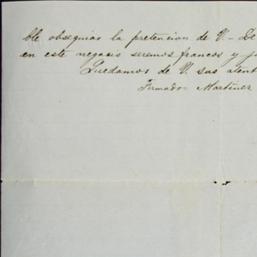 ble obsequiar la pretencion de V– De
en este negosio seremos francos y
Quedamos de V. sus atent
Firmado– Martinez